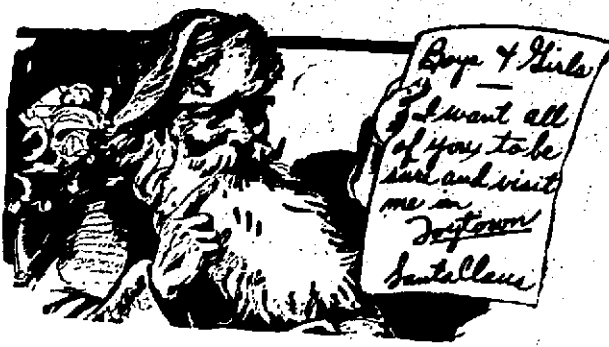 Boys & Girls
I want all
of you to be
sure and visit
me in
Toytown
Santa Claus